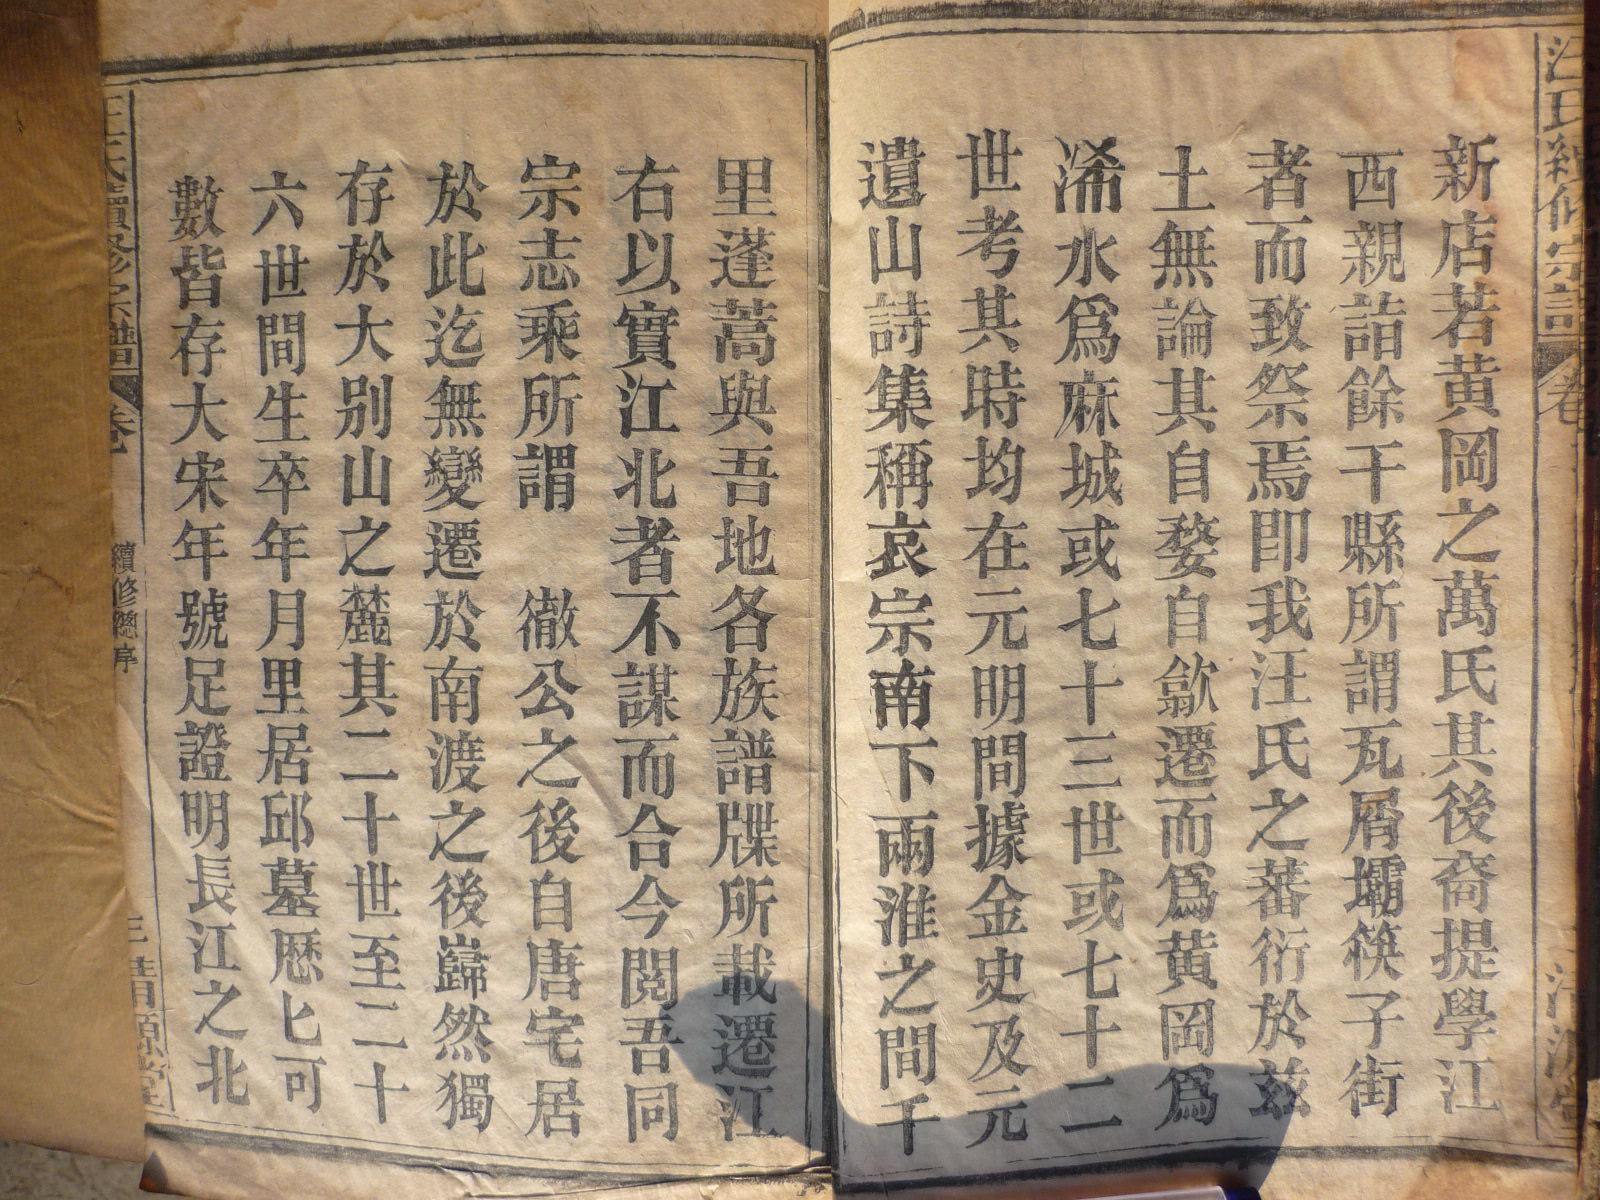 汪氏續修宗譜 卷
新店若黃岡之萬氏其後裔提學江
西親詣餘干縣所謂瓦屑壩筷子街
者而致祭焉即我汪氏之蕃衍於茲
土無論其自婺自歙遷而爲黃岡爲
浠水爲麻城或七十三世或七十二
世考其時均在元明間據金史及元
遺山詩集稱哀宗南下兩淮之間千
里蓬蒿與吾地各族譜牒所載遷江
右以實江北者不謀而合今閱吾同
宗志乘所謂 徹公之後自唐宅居
於此迄無變遷於南渡之後巋然獨
存於大別山之麓其二十世至二十
六世間生卒年月里居邱墓歷匕可
數皆存大宋年號足證明長江之北
汪氏續修宗譜 卷 續修總序 三 清源堂